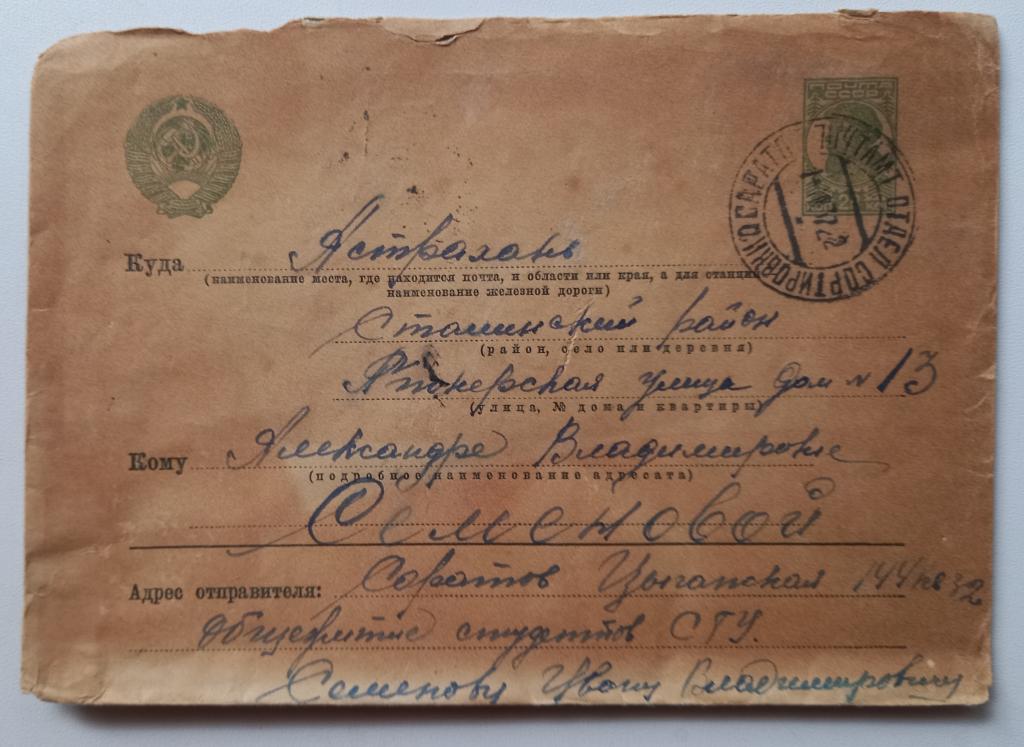 ПОЧТА
СССР
САРАТОВ ПОЧТАМТ ОТДЕЛ СОРТИРОВКИ
Куда Астрахань
(наименование места, где находится почта, и области или края, а для станции
наименование железной дороги)
Сталинский район
(район, село или деревня)
Пионерская улица дом № 13
(улица, № дома и квартиры)
Кому Александре Владимировне
(подробное наименование адресата)
Семеновой
Адрес отправителя: Саратов Цыганская 144 кв 32
Общежитие студентов СГУ.
Семенову Ивану Владимировичу